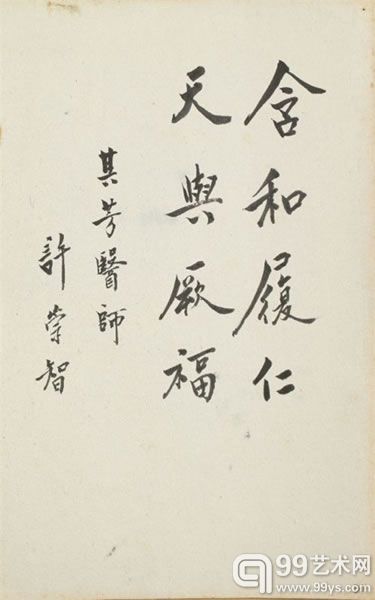 含和履仁
天與厥福
其芳醫師
許崇智
99艺术网
www.99ys.com